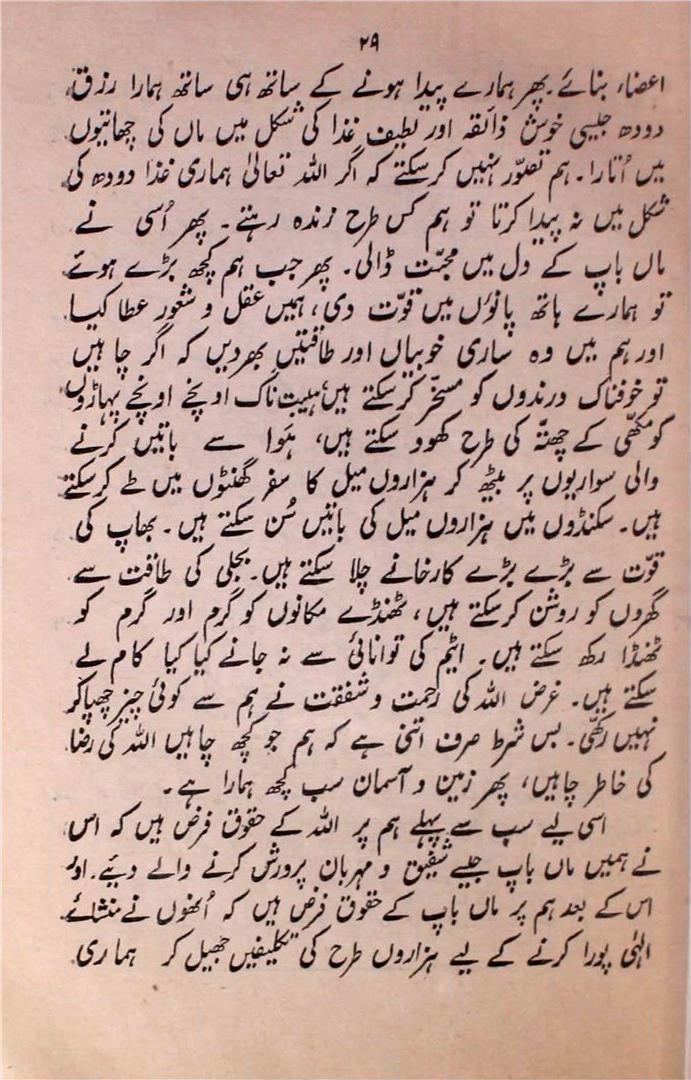 ۲۹
اعضاء بنائے۔ پھر ہمارے پیدا ہونے کے ساتھ ہی ساتھ ہمارا رزق،
دودھ جیسی خوش ذائقہ اور لطیف غذا کی شکل میں ماں کی چھاتیوں
میں اُتارا۔ ہم تصوّر نہیں کرسکتے کہ اگر اللہ تعالیٰ ہماری غذا دودھ کی
شکل میں نہ پیدا کرتا تو ہم کس طرح زندہ رہتے۔ پھر اُسی نے
ماں باپ کے دل میں محبّت ڈالی۔ پھر جب ہم کچھ بڑے ہوئے
تو ہمارے ہاتھ پانوٗں میں قوّت دی، ہمیں عقل و شعور عطا کیا
اور ہم میں وہ ساری خوبیاں اور طاقتیں بھردیں کہ اگر چاہیں
تو خوفناک درندوں کو مسخّر کرسکتے ہیں، ہیبت ناک اونچے اونچے پہاڑوں
کو مکھّی کے چھتّہ کی طرح کھود سکتے ہیں، ہَوا سے باتیں کرنے
والی سواریوں پر بیٹھ کر ہزاروں میل کا سفر گھنٹوں میں طے کرسکتے
ہیں۔ سکنڈوں میں ہزاروں میل کی باتیں سُن سکتے ہیں۔ بھاپ کی
قوّت سے بڑے بڑے کارخانے چلا سکتے ہیں۔ بجلی کی طاقت سے
گھروں کو روشن کرسکتے ہیں، ٹھنڈے مکانوں کو گرم اور گرم کو
ٹھنڈا رکھ سکتے ہیں۔ ایٹم کی توانائی سے نہ جانے کیا کیا کام لے
سکتے ہیں۔ غرض اللہ کی رحمت و شفقت نے ہم سے کوئی چیز چھپاکر
نہیں رکھّی۔ بس شرط صرف اتنی ہے کہ ہم جو کچھ چاہیں اللہ کی رضا
کی خاطر چاہیں، پھر زمین و آسمان سب کچھ ہمارا ہے۔
اسی لیے سب سے پہلے ہم پر اللہ کے حقوق فرض ہیں کہ اس
نے ہمیں ماں باپ جیسے شفیق و مہربان پرورش کرنے والے دیئے۔ اور
اس کے بعد ہم پر ماں باپ کے حقوق فرض ہیں کہ اُنھوں نے منشائے
الٰہی پورا کرنے کے لیے ہزاروں طرح کی تکلیفیں جھیل کر ہماری